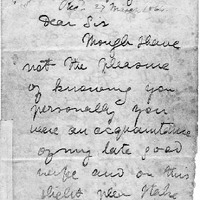 Dear Sir
Though I have
not the pleasure
of knowing you
personally you
were an acquaintance
of my late good
and on this
slight plea I take